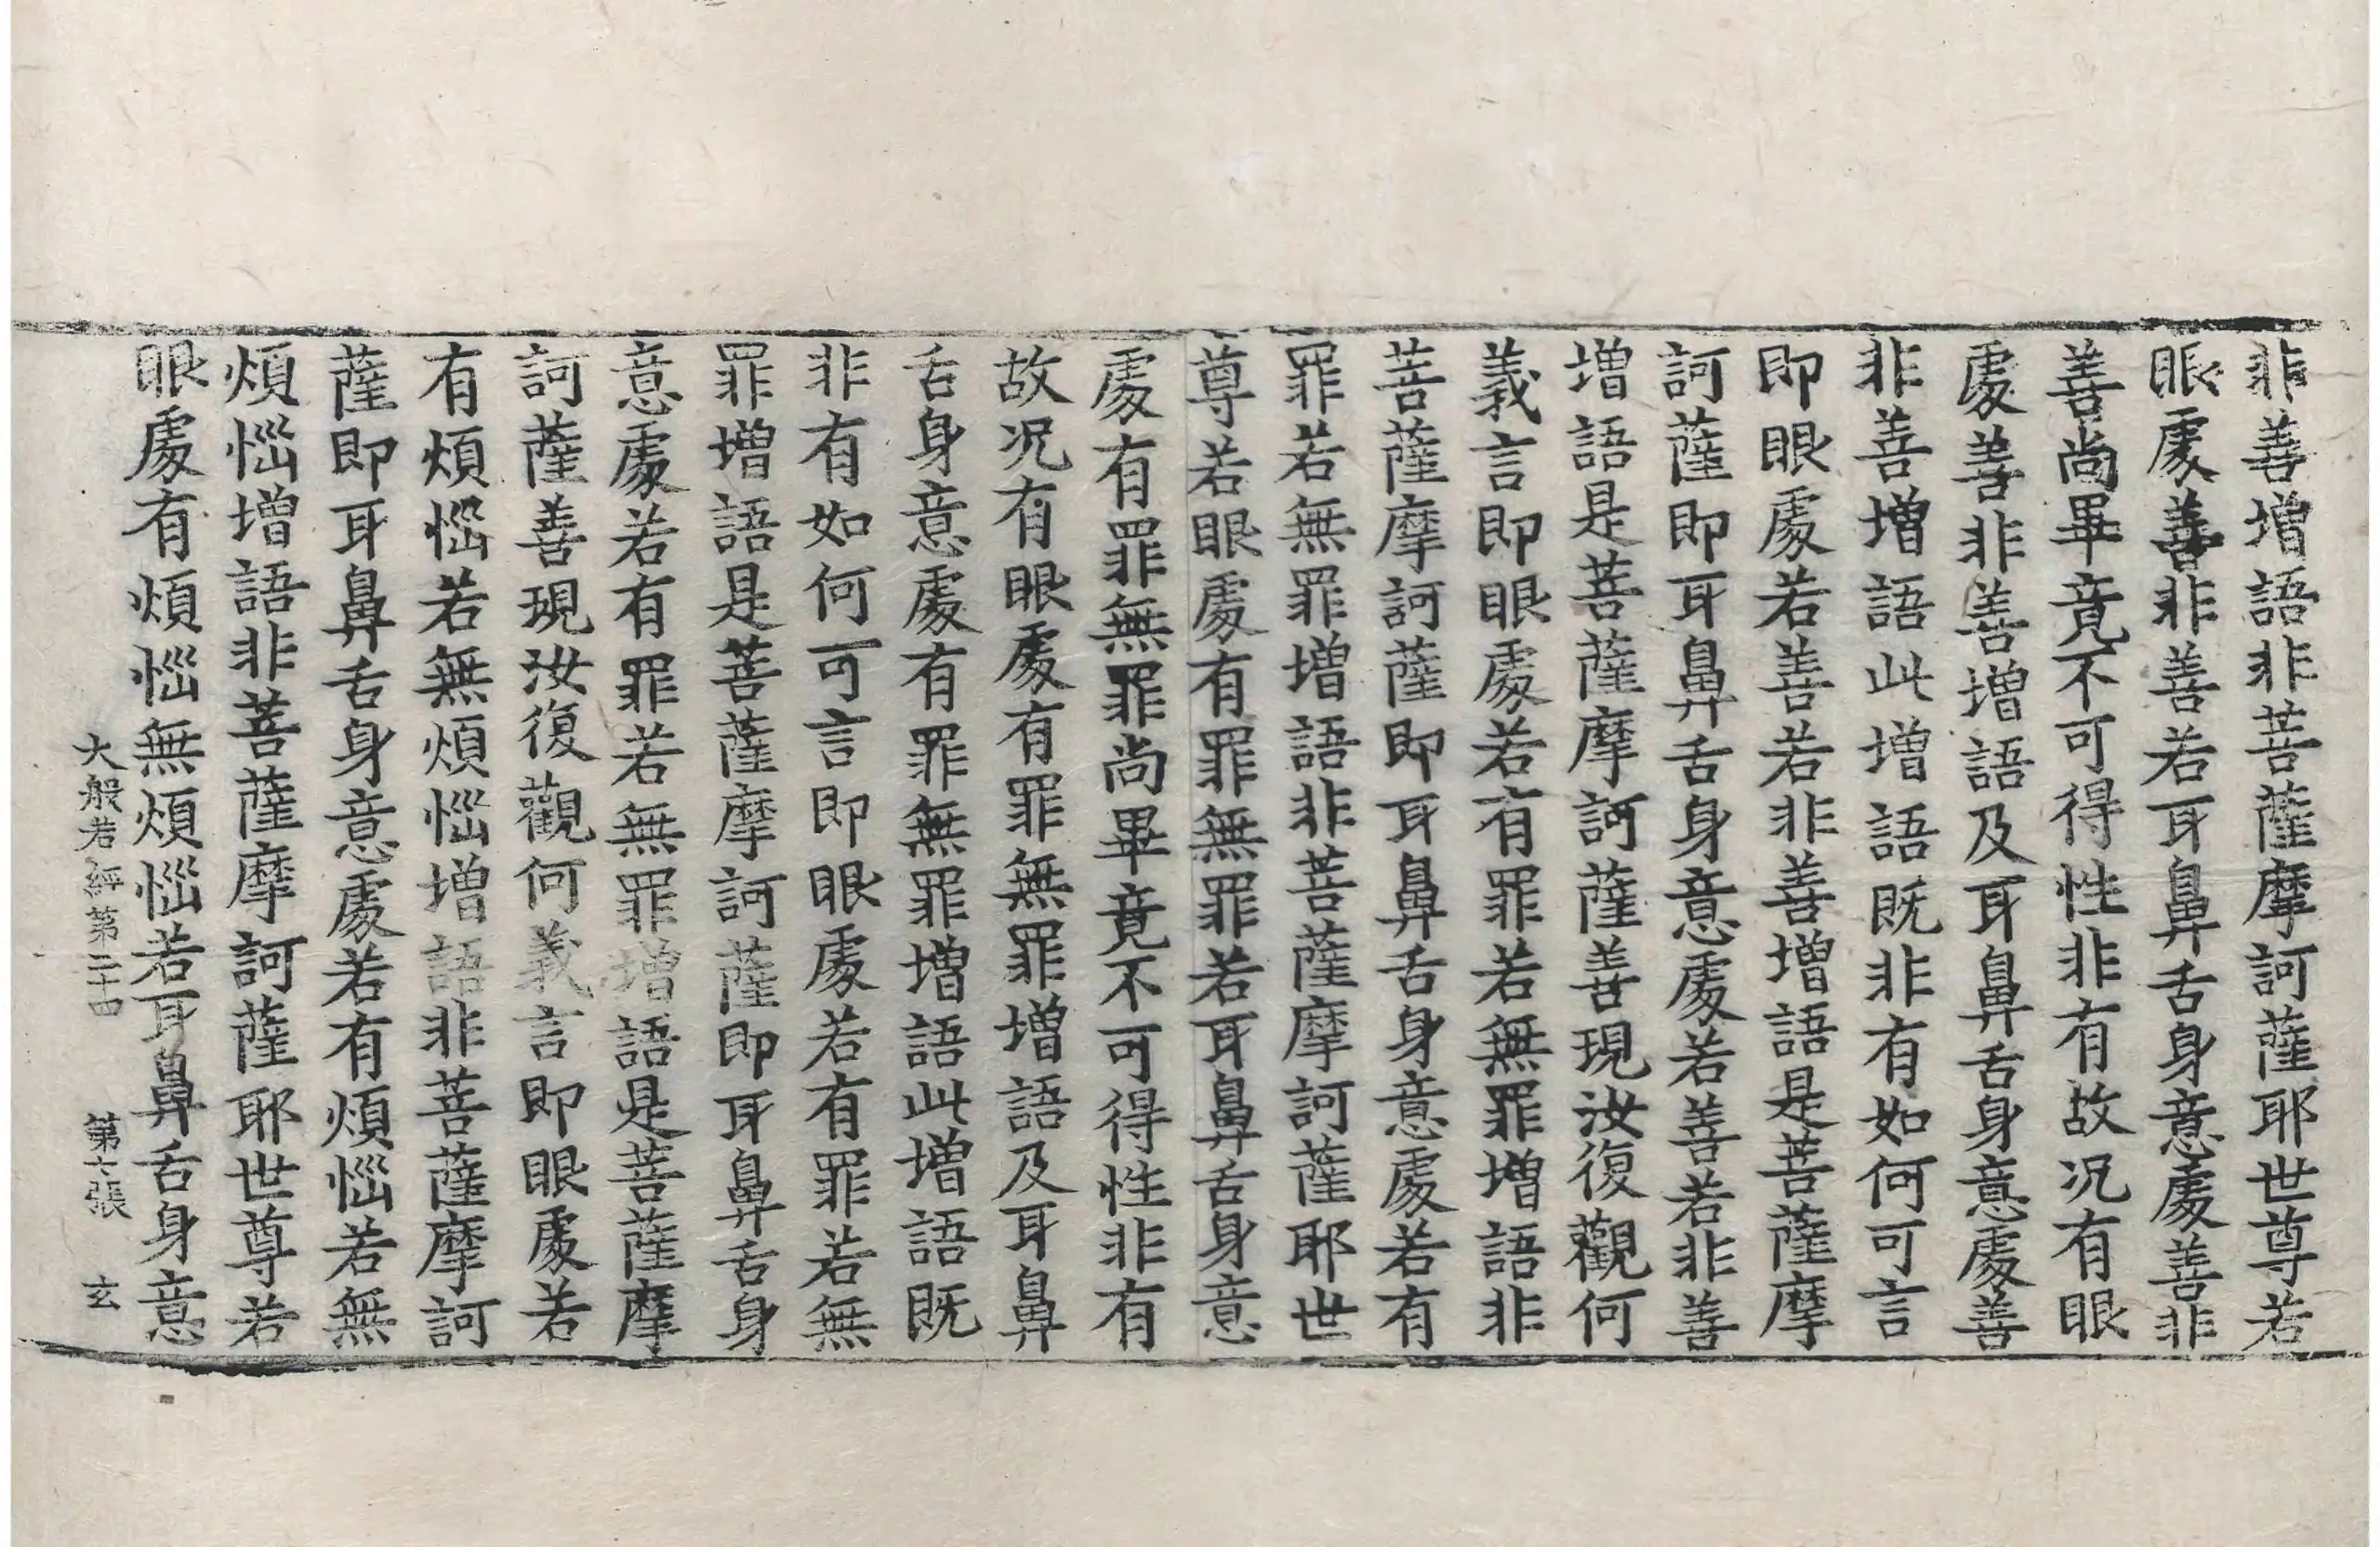 非善增語非菩薩摩訶薩耶世尊若
眼處善非善若耳鼻舌身意處善非
善尚畢竟不可得性非有故况有眼
處善非善增語及耳鼻舌身意處善
非善增語此增語既非有如何可言
即眼處若善若非善增語是菩薩摩
訶薩即耳鼻舌身意處若善若非善
增語是菩薩摩訶薩善現汝復觀何
義言即眼處若有罪若無罪增語非
菩薩摩訶薩即耳鼻舌身意處若有
罪若無罪增語非菩薩摩訶薩耶世
尊若眼處有罪無罪若耳鼻舌身意
處有罪無罪尚畢竟不可得性非有
故况有眼處有罪無罪增語及耳鼻
舌身意處有罪無罪增語此增語既
非有如何可言即眼處若有罪若無
罪增語是菩薩摩訶薩即耳鼻舌身
意處若有罪若無罪增語是菩薩摩
訶薩善現汝復觀何義言即眼處若
有煩惱若無煩惱增語非菩薩摩訶
薩即耳鼻舌身意處若有煩惱若無
煩惱增語非菩薩摩訶薩耶世尊若
眼處有煩惱無煩惱若耳鼻舌身意
大般若經第二十四 第六張 玄